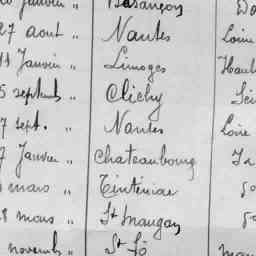 Janvier " Besançon Do
27 aout " Nantes Loire
11 Janvier " Limoges Haut
5 septemb " Clichy Sei
7 sept. " Nantes Loire
7 Janvier " Chateaubourg
mars " Tinténiac
8 mars " St Maugan
novemb " St Lô Man